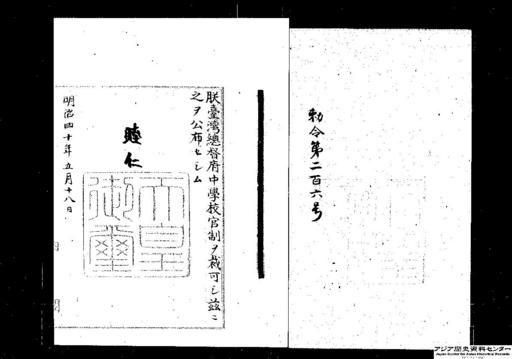 勅令第二百六号
朕臺灣總督府中學校官制ヲ裁可シ玆ニ
之ヲ公布セシム
睦仁
天皇御璽
明治四十年五月十八日
アジア歴史資料センター
Japan Center for Asian Historical Records